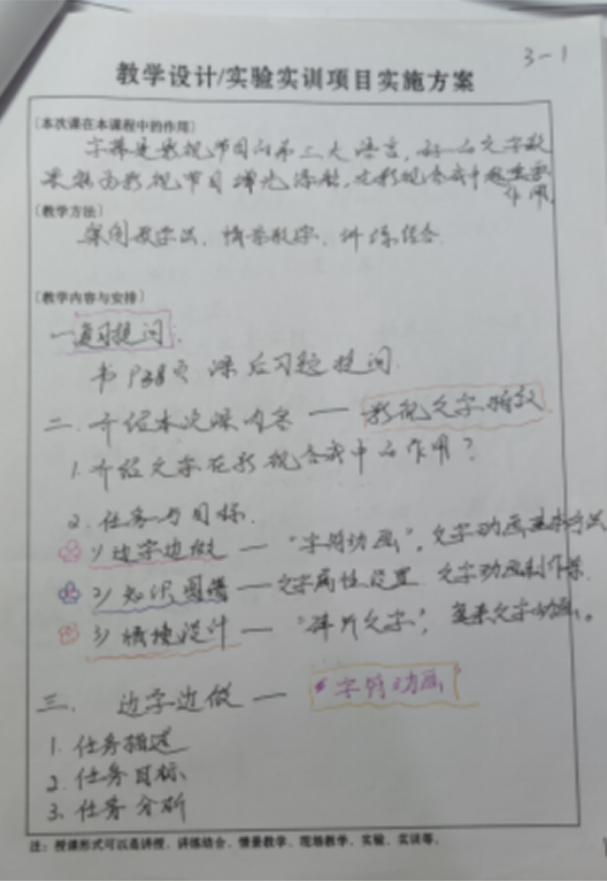 3-1
教学设计/实验实训项目实施方案
〔本次课在本课程中的作用〕
字幕是影视节目的第三大语言，好的文字效
果能为影视节目增光添彩，在影视合成中起重要
作用
〔教学方法〕
案例教学法、情景教学、讲练结合
〔教学内容与安排〕
一 复习提问
书P38页 课后习题提问
二. 介绍本次课内容 — 影视文字特效
1. 介绍文字在影视合成中的作用？
2. 任务与目标.
1) 边学边做 — “字符动画”，文字动画基本方法
2) 知识图谱 — 文字属性设置 文字动画制作
3) 模块设计 — “碎片文字”，复杂文字动画。
三. 边学边做 — 字符动画
1. 任务描述
2. 任务目标
3. 任务分析
注：授课形式可以是讲授、讲练结合、情景教学、现场教学、实验、实训等。